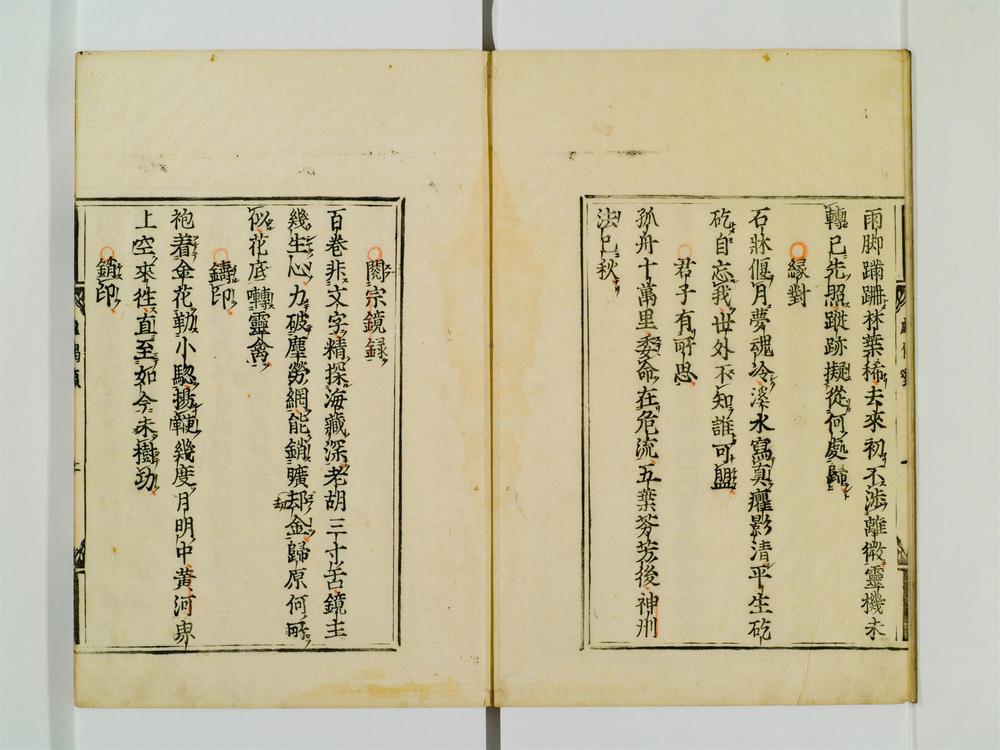 雨脚蹣跚林葉稀去來初不渉離微靈機未
轉已先照蹤跡擬從何處歸
縁對
石牀偃月夢魂冷溪水寫真癯影清平生矻
矻自忘我世外不知誰可盟
君子有所思
孤舟十萬里委命在危流五葉芬芳後神州
法已秋
閲宗鏡録
百巻非文字精探海藏深老胡三寸舌鏡主
幾生心力破塵勞網能銷曠却金歸原何所
劫
似花底囀靈禽
鑄印
袍着金花勒小驄揚鞭幾度月明中黄河束
上空來往直至如今未樹功
銷印